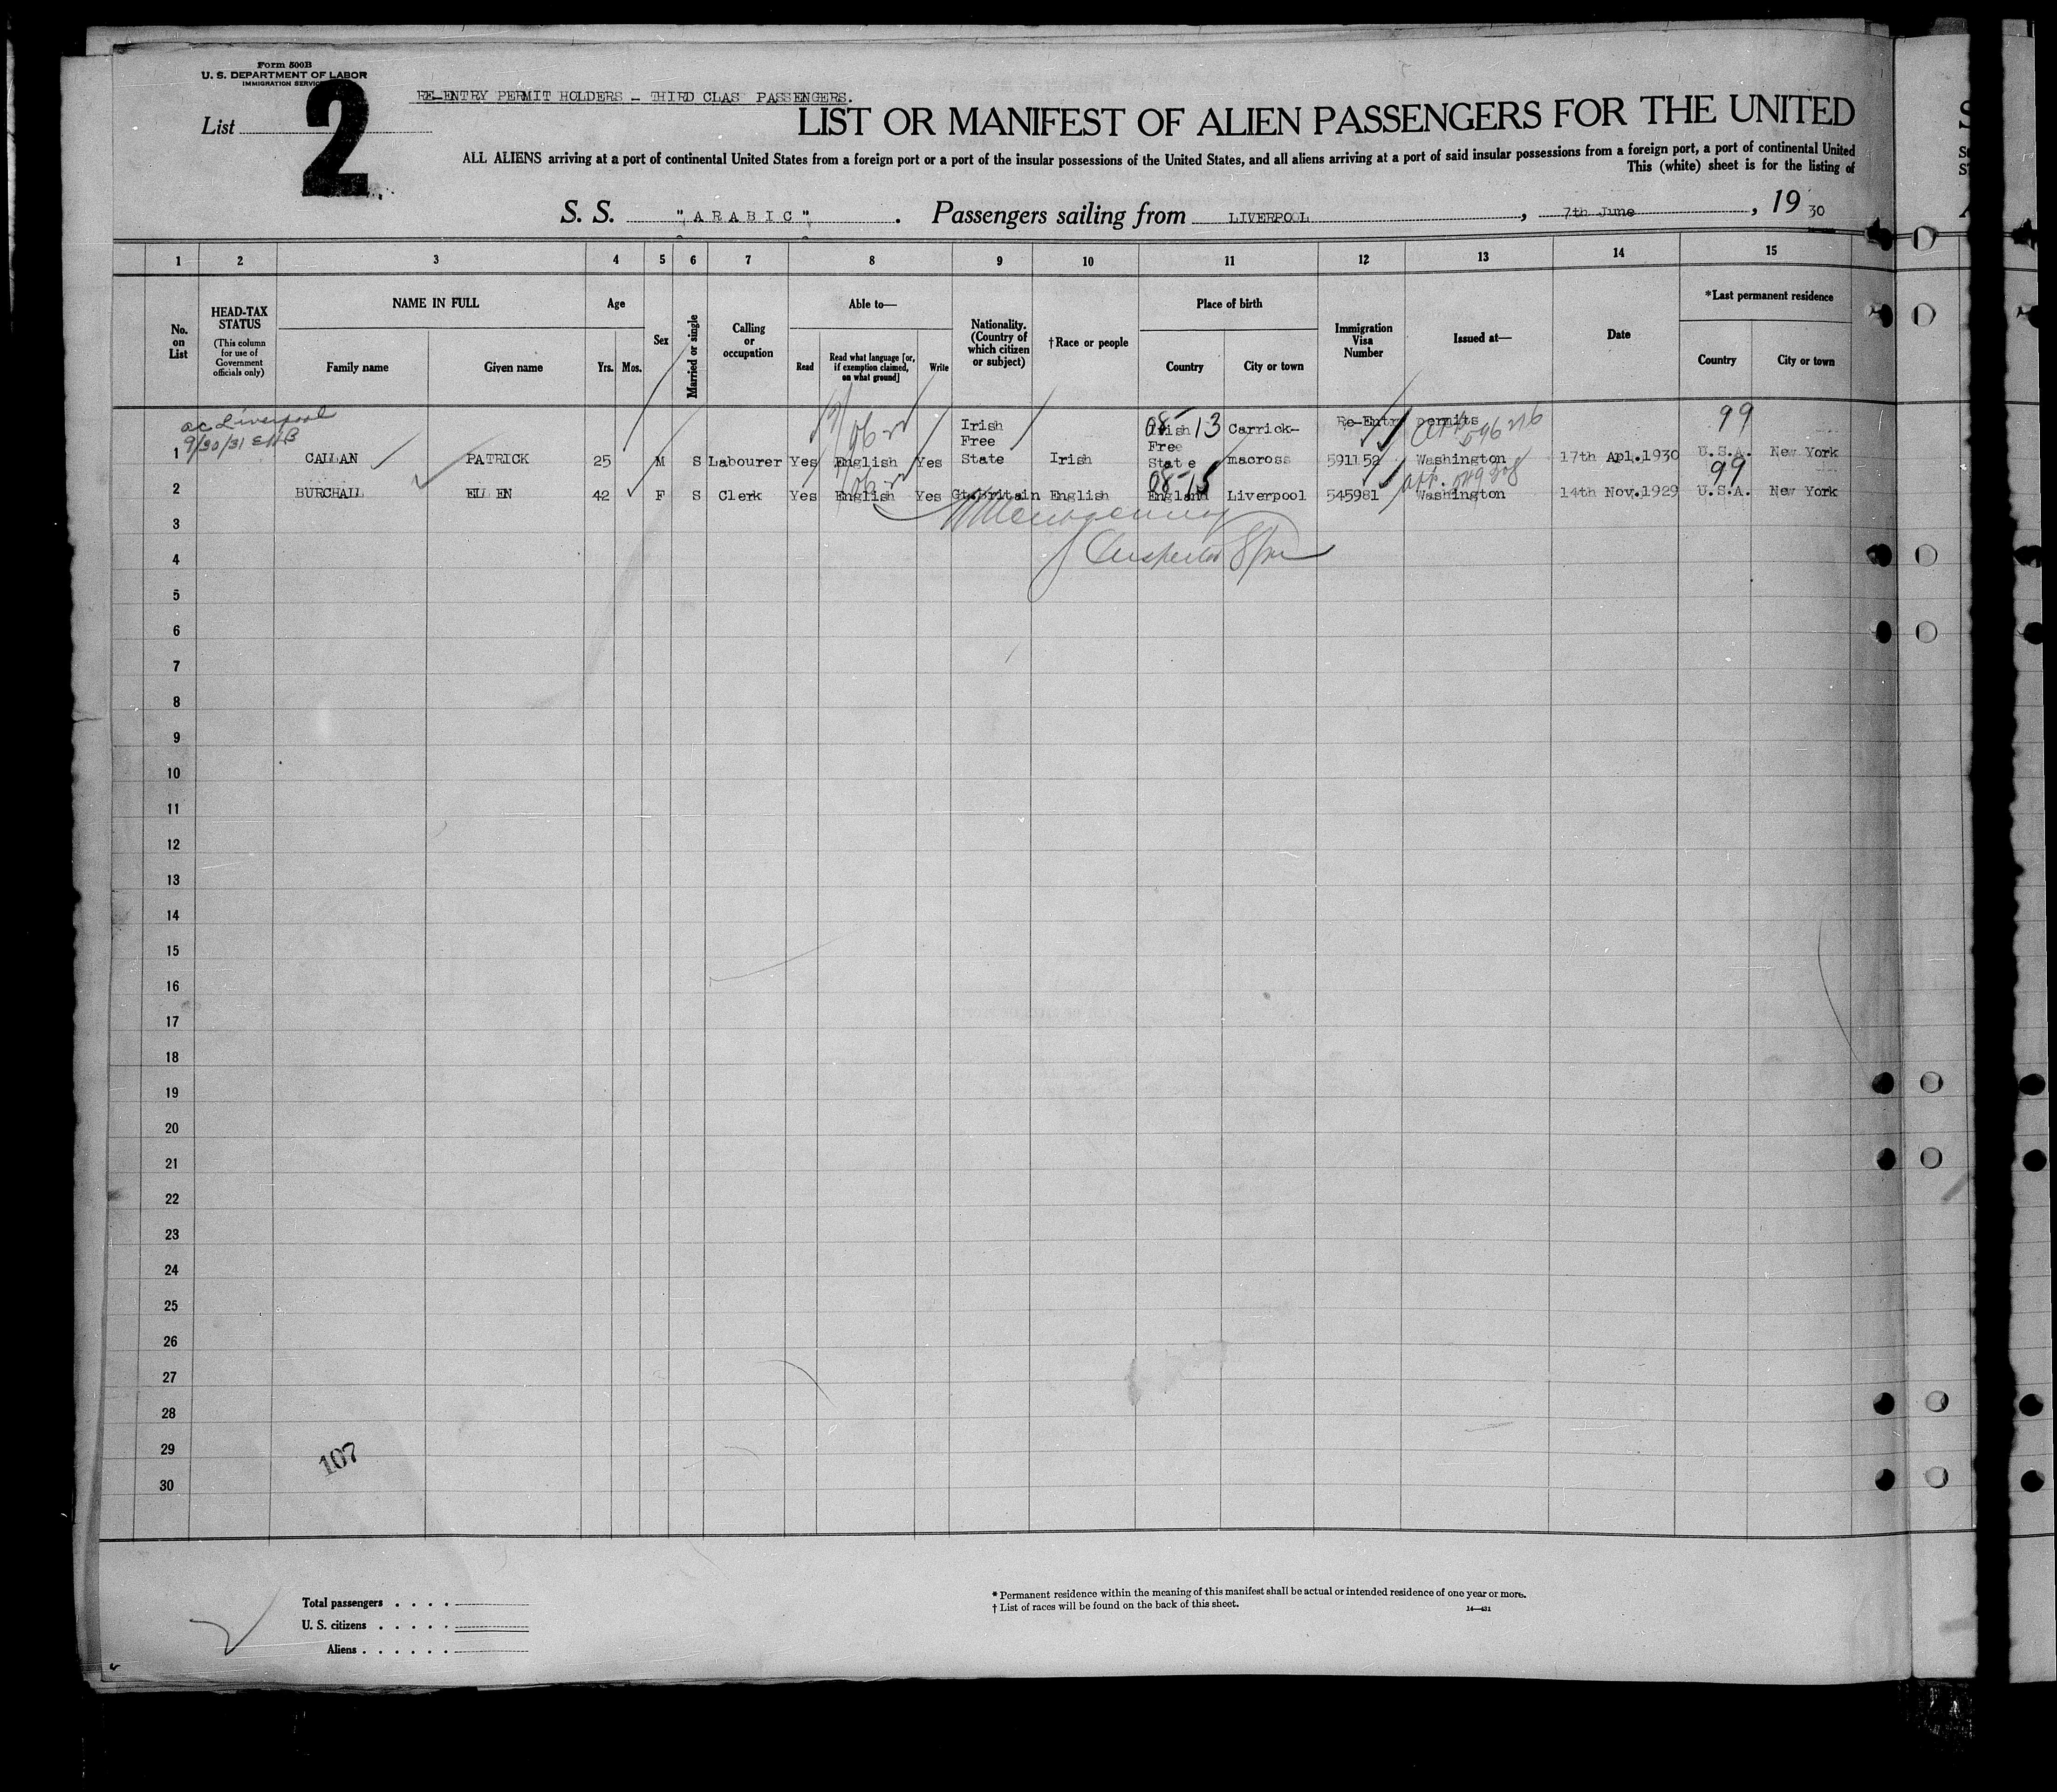 Form 500B
U. S. DEPARTMENT OF LABOR
IMMIGRATION SERVICE
RE-ENTRY PERMIT HOLDERS - THIRD CLAS PASSENGERS.
List 2
LIST OR MANIFEST OF ALIEN PASSENGERS FOR THE UNITED
ALL ALIENS arriving at a port of continental United States from a foreign port or a port of the insular possessions of the United States, and all aliens arriving at a port of said insular possessions from a foreign port, a port of continental United
This (white) sheet is for the listing of
S. S. "ARABIC". Passengers sailing from LIVERPOOL, 7th June, 1930
1 2 3 4 5 6 7 8 9 10 11 12 13 14 15
No. on List
HEAD-TAX STATUS (This column for use of Government officials only)
NAME IN FULL
Family name Given name
Age
Yrs. Mos.
Sex
Married or single
Calling or occupation
Able to—
Read Read what language [or, if exemption claimed, on what ground] Write
Nationality. (Country of which citizen or subject)
†Race or people
Place of birth
Country City or town
Immigration Visa Number
Issued at—
Date
*Last permanent residence
Country City or town
ac Liverpool
9/30/31 EHB
Re-Entry permits
08-13 99
1 CALLAN PATRICK 25 M S Labourer Yes English Yes Irish Free State Irish Irish Free State Carrick-macross 591152 Washington 17th Apl.1930 U.S.A. New York
08-15 99
2 BURCHALL ELLEN 42 F S Clerk Yes English Yes Gt.Britain English England Liverpool 545981 Washington 14th Nov.1929 U.S.A. New York
3
4
5
6
7
8
9
10
11
12
13
14
15
16
17
18
19
20
21
22
23
24
25
26
27
28
29
30
107
Total passengers . . . .
U. S. citizens . . . . .
Aliens . . . . . .
* Permanent residence within the meaning of this manifest shall be actual or intended residence of one year or more.
† List of races will be found on the back of this sheet.
14—431